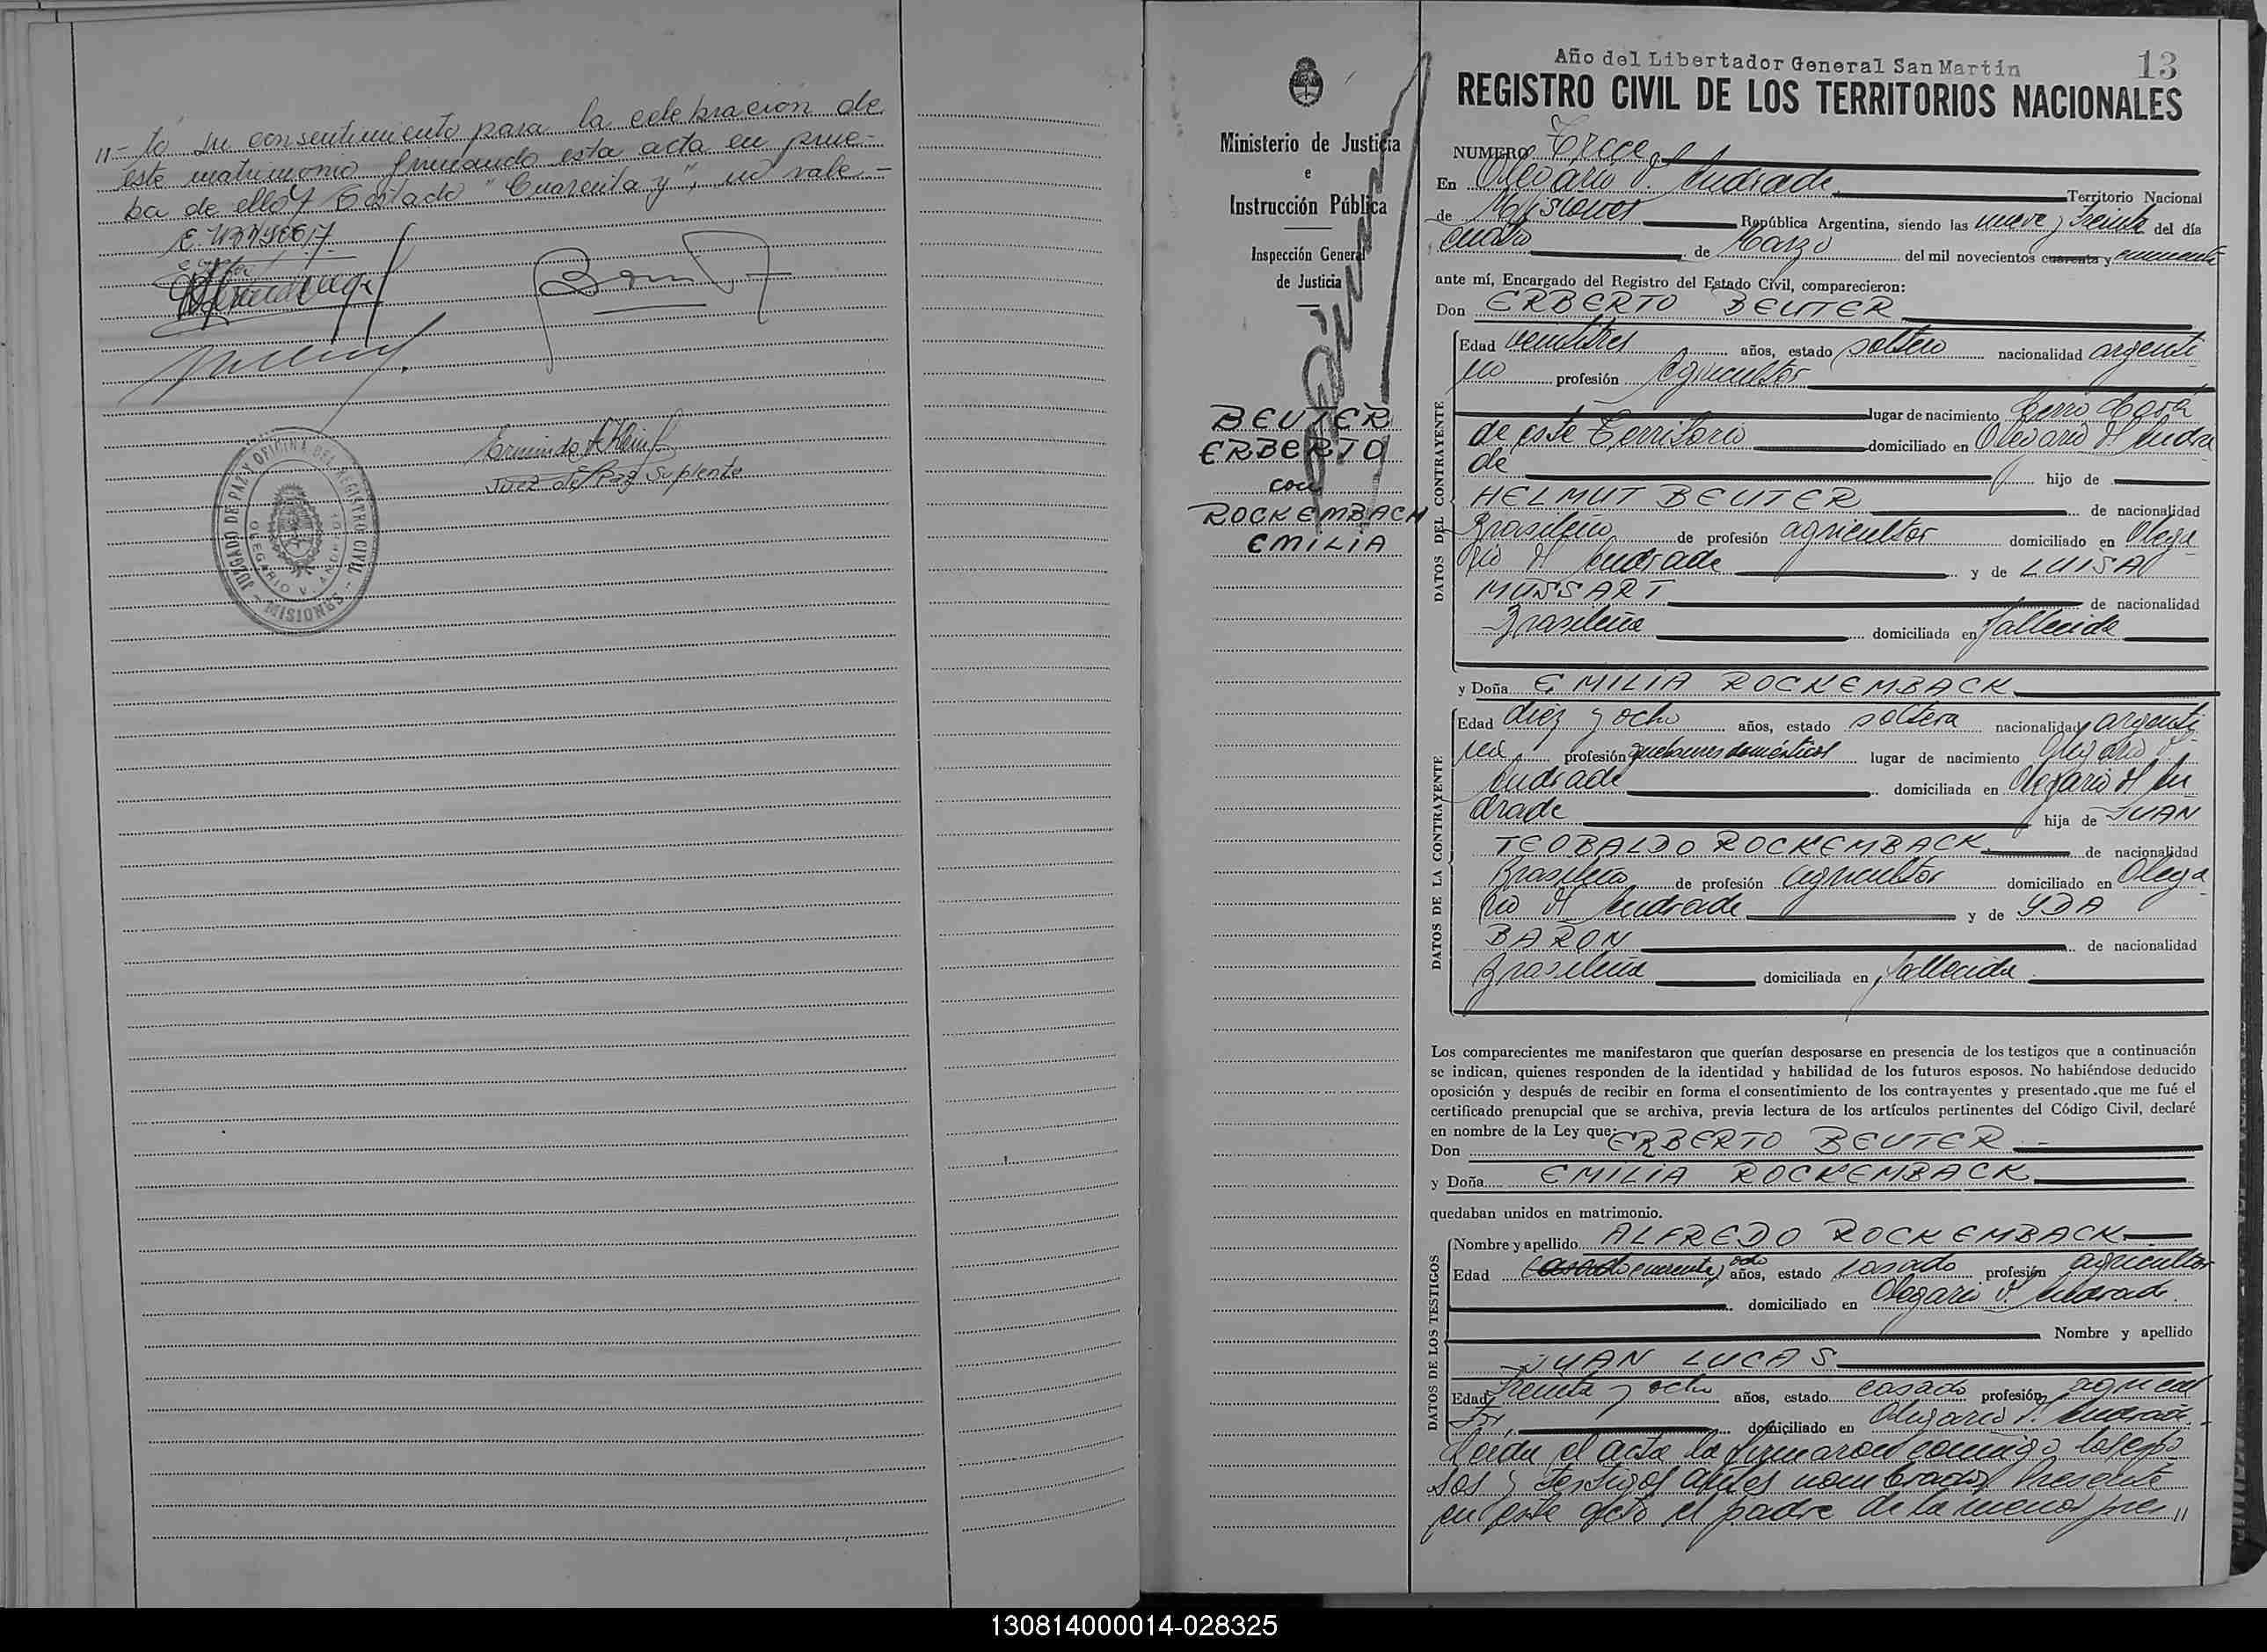 11- tó su consentimiento para la celebracion de
este matrimonio firmando esta acta en prue-
ba de ello Testado "Cuarenta y", no vale-
Juez de Paz Suplente
JUZGADO DE PAZ Y OFICINA DEL REGISTRO CIVIL
OLEGARIO V. ANDRADE
- MISIONES -
Ministerio de Justicia
e
Instrucción Pública
Inspección General
de Justicia
BEUTER
ERBERTO
con
ROCKEMBACH
EMILIA
Año del Libertador General San Martín
13
REGISTRO CIVIL DE LOS TERRITORIOS NACIONALES
NUMERO Trece
En Olegario V. Andrade Territorio Nacional
de Misiones República Argentina, siendo las nueve y treinta del día
cuatro de Marzo del mil novecientos cuarenta y cincuenta
ante mí, Encargado del Registro del Estado Civil, comparecieron:
Don ERBERTO BEUTER
DATOS DEL CONTRAYENTE
Edad veintitres años, estado soltero nacionalidad argenti
no profesión agricultor
lugar de nacimiento Cerro Corá
de este Territorio domiciliado en Olegario V. Andra
de hijo de
HELMUT BEUTER de nacionalidad
Brasileño de profesión agricultor domiciliado en Olega
rio V. Andrade y de LUISA
MUSSART de nacionalidad
Brasileña domiciliada en fallecida
y Doña EMILIA ROCKEMBACK
DATOS DE LA CONTRAYENTE
Edad diez y ocho años, estado soltera nacionalidad argenti
na profesión quehaceres domésticos lugar de nacimiento Olegario V.
Andrade domiciliada en Olegario V. An
drade hija de JUAN
TEOBALDO ROCKEMBACK de nacionalidad
Brasileño de profesión agricultor domiciliado en Olega
rio V. Andrade y de YDA
BARON de nacionalidad
Brasileña domiciliada en fallecida
Los comparecientes me manifestaron que querían desposarse en presencia de los testigos que a continuación
se indican, quienes responden de la identidad y habilidad de los futuros esposos. No habiéndose deducido
oposición y después de recibir en forma el consentimiento de los contrayentes y presentado que me fué el
certificado prenupcial que se archiva, previa lectura de los artículos pertinentes del Código Civil, declaré
en nombre de la Ley que:
Don ERBERTO BEUTER
y Doña EMILIA ROCKEMBACK
quedaban unidos en matrimonio.
DATOS DE LOS TESTIGOS
Nombre y apellido ALFREDO ROCKEMBACK
Edad casado cuarenta y ocho años, estado casado profesión agricultor
domiciliado en Olegario V. Andrade
Nombre y apellido
JUAN LUCAS
Edad treinta y ocho años, estado casado profesión agricul
tor domiciliado en Olegario V. Andrade.
Leida el acta la firmaron conmigo los espo
sos y testigos antes nombrados Presente
en este acto el padre de la menor pres 11
130814000014-028325